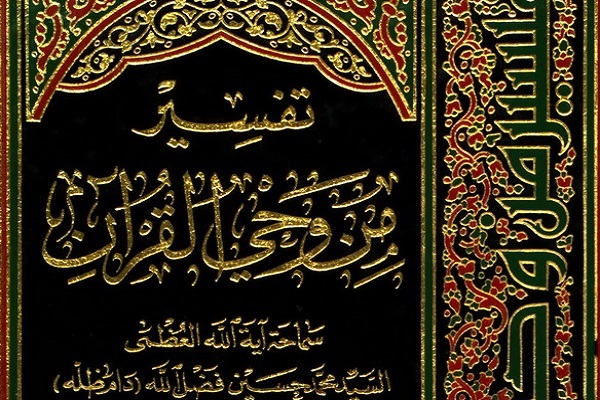 تَفسِيرُ
مِن وَحْيِ القُرآنِ
سَمَاحَة آية الله العُظمَى
السَيِّد مُحَمَّد حُسَين فَضْل الله (دَامَ ظِلُّه)
تفسير من وحي